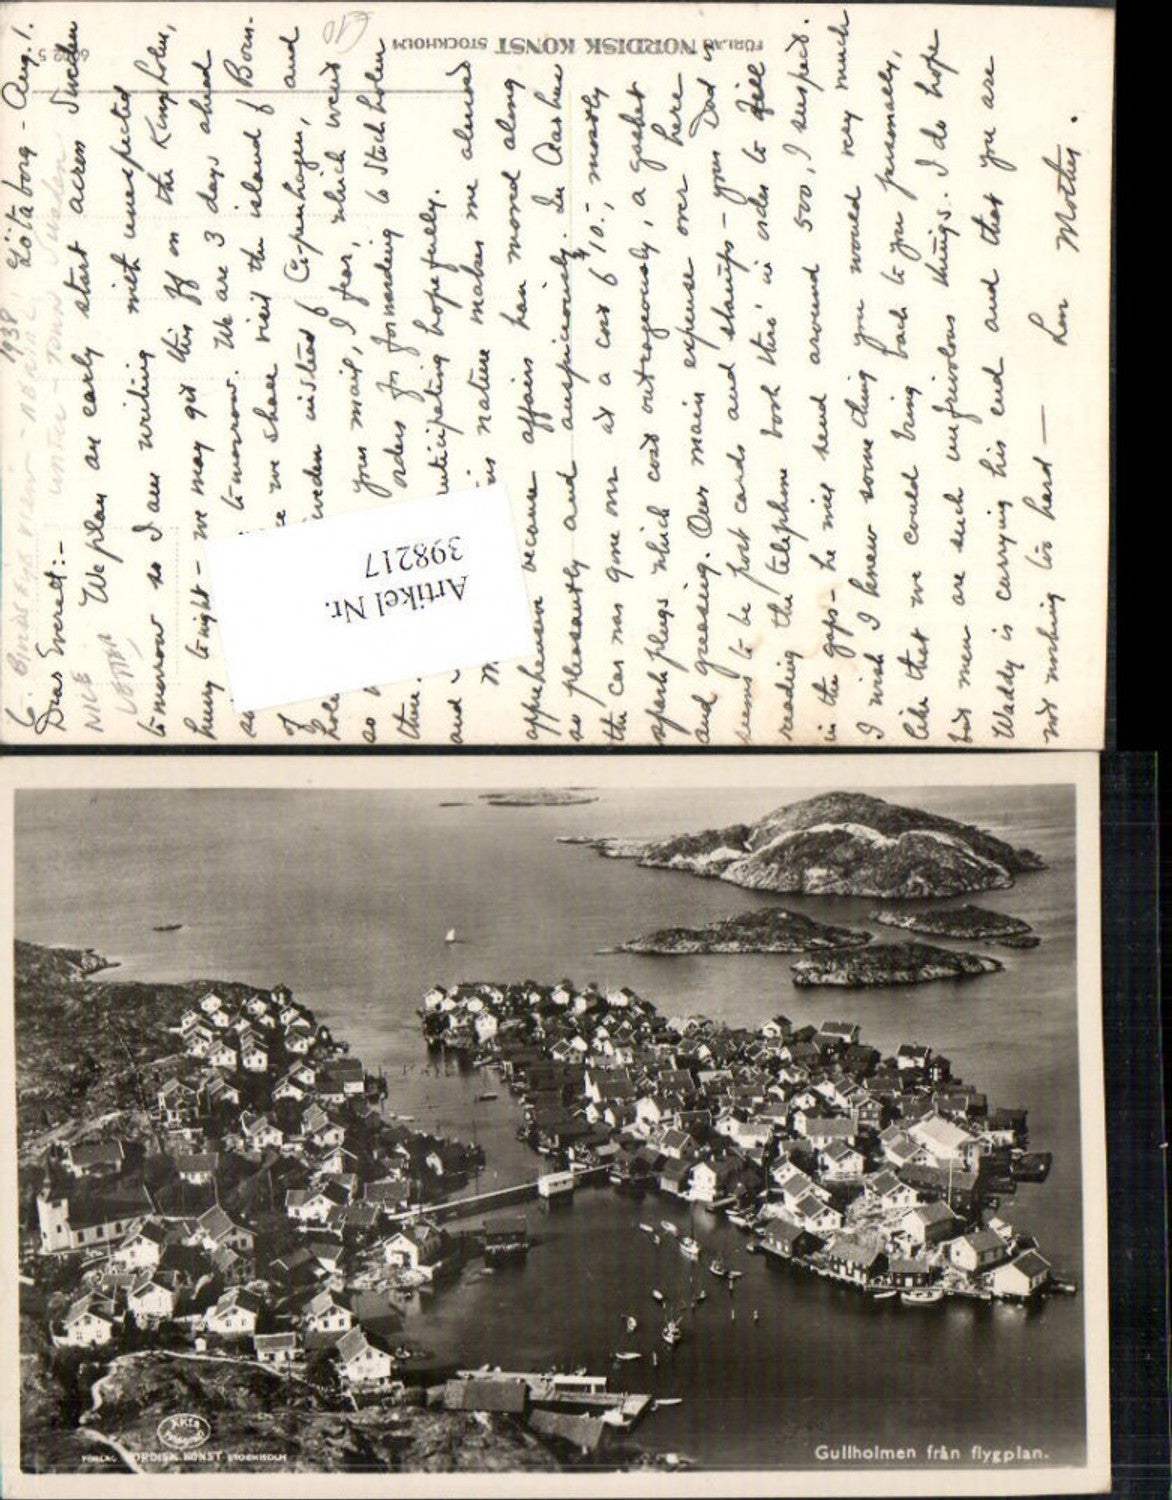 FÖRLAG NORDISK KONST STOCKHOLM
692 5
1938, Götaborg - Aug. 1.
Dear Everett:-
NICE LETTER
We plan an early start across Sweden
tomorrow so I am writing with unexpected
hurry tonight - we may get this off on the Kungsholm,
tomorrow. We are 3 days ahead
we shall visit the island of Born-
instead of Copenhagen, and
so your mail, I fear, which went
there. orders for forwarding to Stockholm
and anticipating hopefully.
nature makes me almost
apprehensive because affairs have moved along
so pleasantly and auspiciously. In Aarhus
the car was gone over at a cost of $10.-, mostly
spark plugs which cost outrageously, a gasket
and greasing. Our main expense over here
seems to be post cards and stamps - your Dad is
reading the telephone book thro' in order to fill
in the gaps - he will send around 500, I suspect.
I wish I knew something you would very much
like that we could bring back to you personally,
but men are such unfrivolous things. I do hope
Waddy is carrying his end and that you are
not working too hard —
Love Mother.
Artikel Nr.
398217
FÖRLAG NORDISK KONST STOCKHOLM
Gullholmen från flygplan.